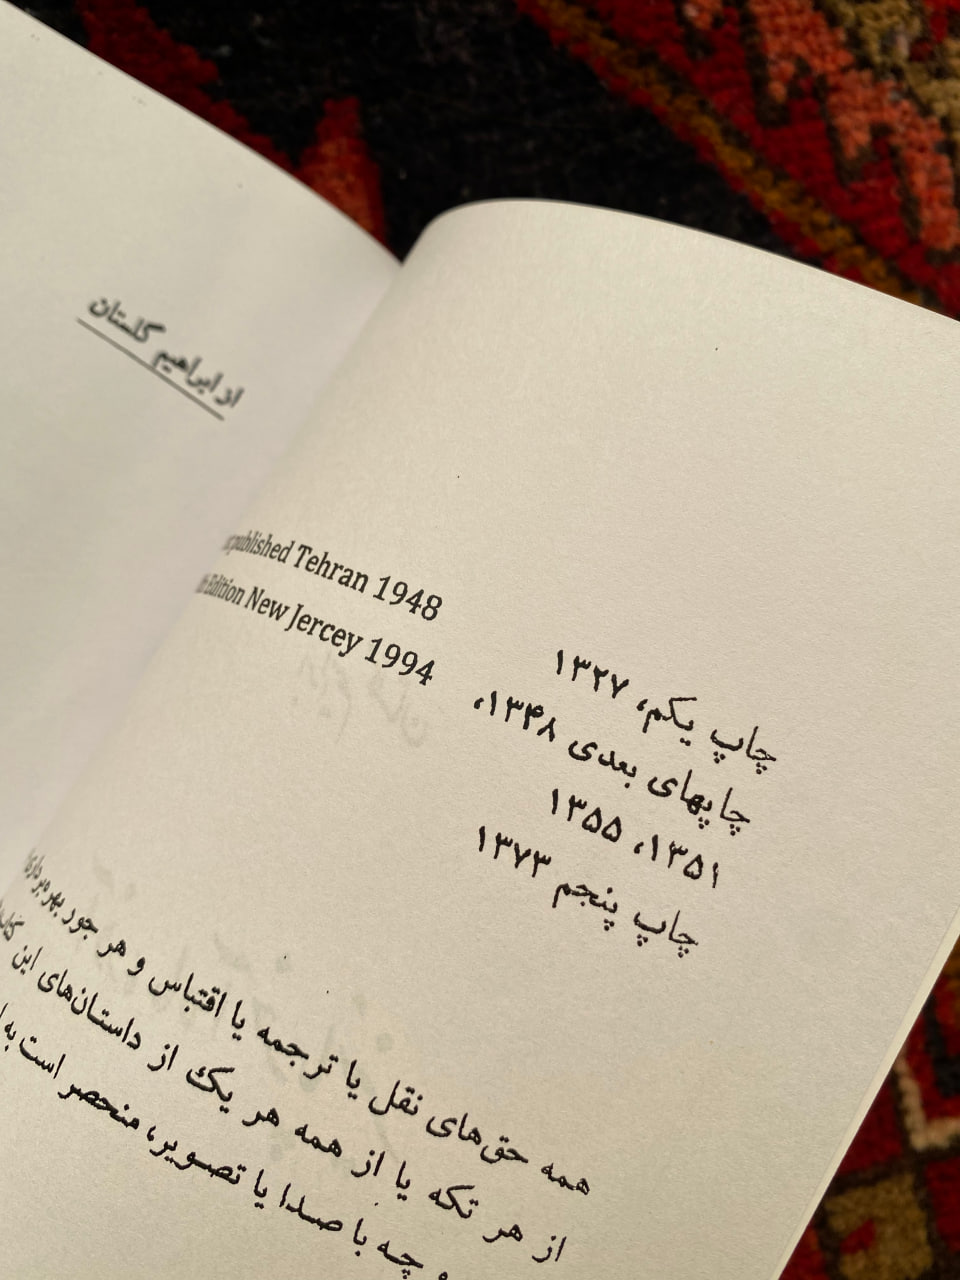 از ابراهیم گلستان
published Tehran 1948
Edition New Jercey 1994
چاپ یکم، ۱۳۲۷
چاپهای بعدی ۱۳۴۸،
۱۳۵۱، ۱۳۵۵
چاپ پنجم ۱۳۷۳
همه حق‌های نقل یا ترجمه یا اقتباس و هر جور بهره‌برداری
از هر تکه یا از همه هر یک از داستان‌های این
چه با صدا یا تصویر، منحصر است به